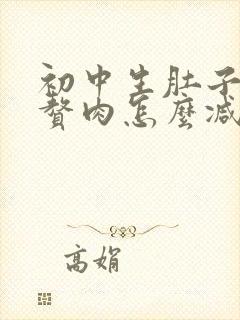 初中生肚子
赘肉怎麼减
高娟